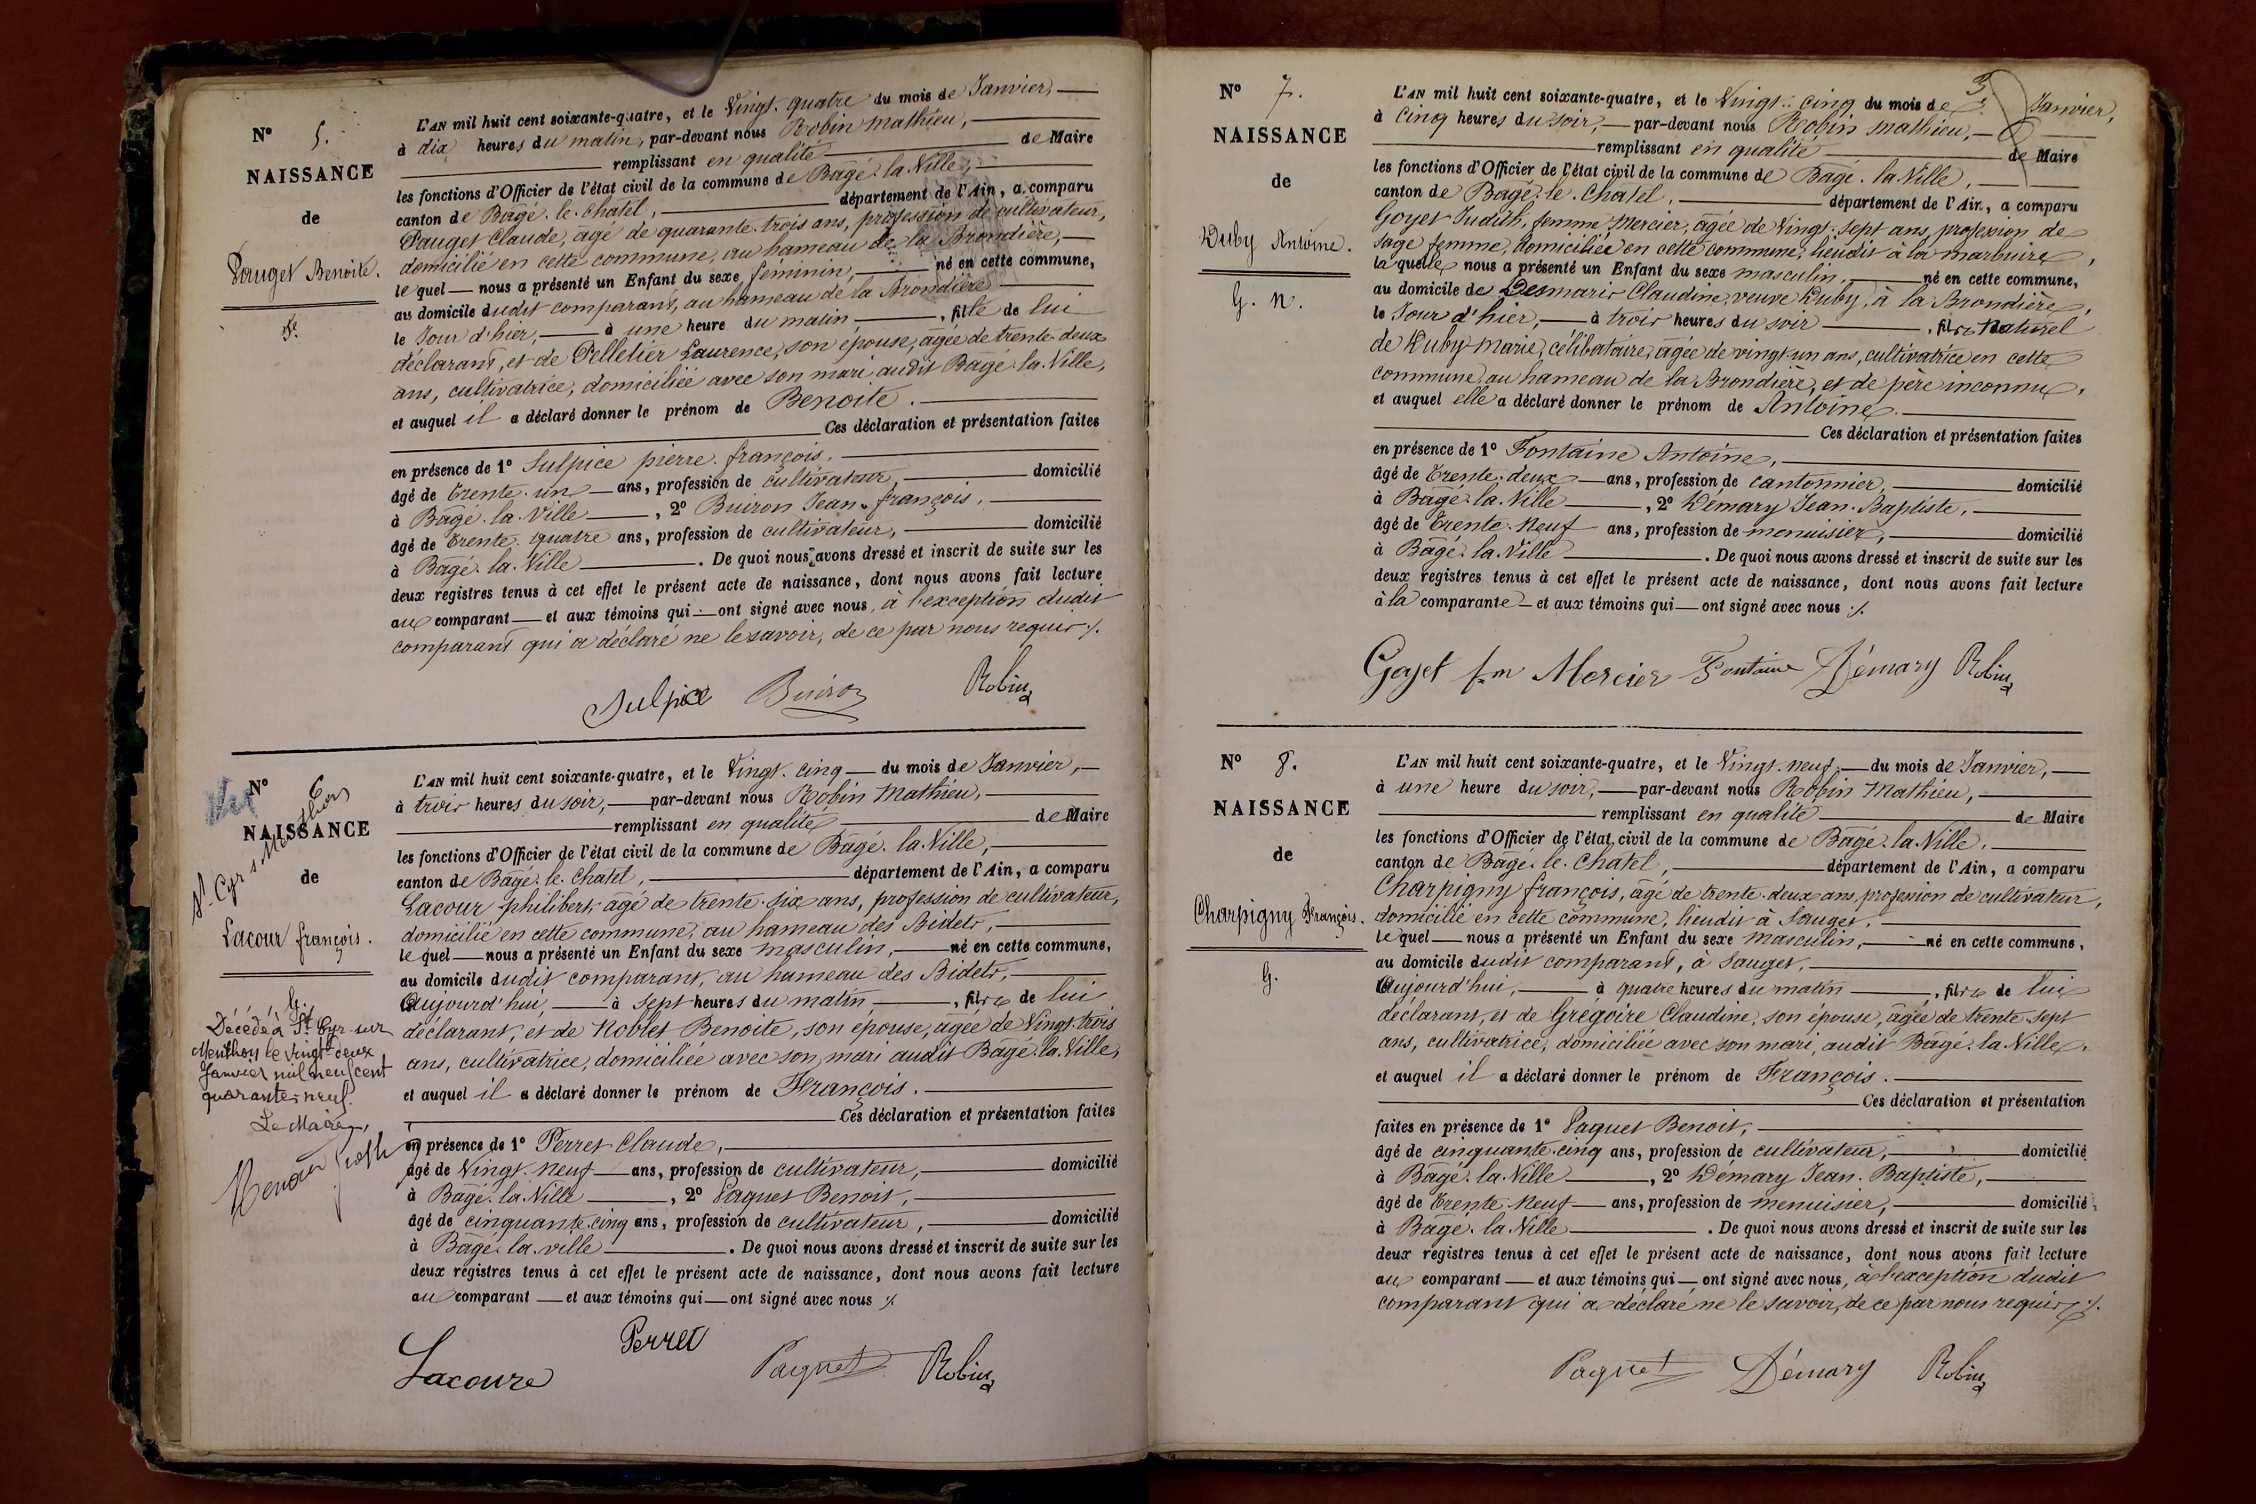 N° 5.
NAISSANCE
de
Pauget Benoite.
F.
L'AN mil huit cent soixante-quatre, et le Vingt-quatre du mois de Janvier,
à dix heures du matin, par-devant nous Robin Mathieu,
remplissant en qualité de Maire
les fonctions d'Officier de l'état civil de la commune de Bâgé-la-Ville,
canton de Bâgé-le-Chatel, département de l'Ain, a comparu
Pauget Claude, âgé de quarante-trois ans, profession de cultivateur,
domicilié en cette commune, au hameau de la Brondière,
lequel nous a présenté un Enfant du sexe féminin, né en cette commune,
au domicile dudit comparant, au hameau de la Brondière
le Jour d'hier, à une heure du matin, fille de lui
déclarant, et de Pelletier Laurence, son épouse, âgée de trente-deux
ans, cultivatrice, domiciliée avec son mari audit Bâgé-la-Ville,
et auquel il a déclaré donner le prénom de Benoite.
Ces déclaration et présentation faites
en présence de 1° Sulpice pierre-françois,
âgé de Trente-un ans, profession de cultivateur, domicilié
à Bâgé-la-Ville, 2° Buiron Jean-françois,
âgé de Trente-quatre ans, profession de cultivateur, domicilié
à Bâgé-la-Ville. De quoi nous avons dressé et inscrit de suite sur les
deux registres tenus à cet effet le présent acte de naissance, dont nous avons fait lecture
au comparant et aux témoins qui ont signé avec nous, à l'exception dudit
comparant qui a déclaré ne le savoir, de ce par nous requis ./.
Sulpice Buiron Robin
N° 6
NAISSANCE
de
St Cyr s Menthon
Lacour françois.
G.
Décédé à St Cyr sur
Menthon le vingt-deux
Janvier mil neuf cent
quarante-neuf.
Le Maire,
L'AN mil huit cent soixante-quatre, et le Vingt-cinq du mois de Janvier,
à trois heures du soir, par-devant nous Robin Mathieu,
remplissant en qualité de Maire
les fonctions d'Officier de l'état civil de la commune de Bâgé-la-Ville,
canton de Bâgé-le-Chatel, département de l'Ain, a comparu
Lacour philibert, âgé de trente-six ans, profession de cultivateur,
domicilié en cette commune, au hameau des Bidets,
lequel nous a présenté un Enfant du sexe masculin, né en cette commune,
au domicile dudit comparant, au hameau des Bidets,
Aujourd'hui, à sept heures du matin, fils de lui
déclarant, et de Noblet Benoite, son épouse, âgée de Vingt-trois
ans, cultivatrice, domiciliée avec son mari audit Bâgé-la-Ville,
et auquel il a déclaré donner le prénom de François.
Ces déclaration et présentation faites
en présence de 1° Perret Claude,
âgé de Vingt-neuf ans, profession de cultivateur, domicilié
à Bâgé-la-Ville, 2° Paquet Benoit,
âgé de cinquante-cinq ans, profession de cultivateur, domicilié
à Bâgé-la-ville. De quoi nous avons dressé et inscrit de suite sur les
deux registres tenus à cet effet le présent acte de naissance, dont nous avons fait lecture
au comparant et aux témoins qui ont signé avec nous ./.
Lacoure Perret Paquet Robin
3
N° 7.
NAISSANCE
de
Duby Antoine.
G. n.
L'AN mil huit cent soixante-quatre, et le Vingt-cinq du mois de Janvier,
à cinq heures du soir, par-devant nous Robin Mathieu,
remplissant en qualité de Maire
les fonctions d'Officier de l'état civil de la commune de Bâgé-la-Ville,
canton de Bâgé-le-Chatel, département de l'Ain, a comparu
Goyet Judith, femme Mercier, âgée de Vingt-sept ans, profession de
sage femme, domiciliée en cette commune, lieudit à la marbuire,
laquelle nous a présenté un Enfant du sexe masculin, né en cette commune,
au domicile de Desmaris Claudine, veuve Duby, à la Brondière,
le Jour d'hier, à trois heures du soir, fils Naturel
de Duby Marie, célibataire, âgée de vingt-un ans, cultivatrice en cette
commune, au hameau de la Brondière, et de père inconnu,
et auquel elle a déclaré donner le prénom de Antoine.
Ces déclaration et présentation faites
en présence de 1° Fontaine Antoine,
âgé de Trente-deux ans, profession de cantonnier, domicilié
à Bâgé-la-Ville, 2° Démary Jean-Baptiste,
âgé de Trente-Neuf ans, profession de menuisier, domicilié
à Bâgé-la-Ville. De quoi nous avons dressé et inscrit de suite sur les
deux registres tenus à cet effet le présent acte de naissance, dont nous avons fait lecture
à la comparante et aux témoins qui ont signé avec nous ./.
Goyet fm Mercier Fontaine Démary Robin
N° 8.
NAISSANCE
de
Charpigny François.
G.
L'AN mil huit cent soixante-quatre, et le Vingt-neuf du mois de Janvier,
à une heure du soir, par-devant nous Robin Mathieu,
remplissant en qualité de Maire
les fonctions d'Officier de l'état civil de la commune de Bâgé-la-Ville,
canton de Bâgé-le-Chatel, département de l'Ain, a comparu
Charpigny françois, âgé de trente-deux ans, profession de cultivateur,
domicilié en cette commune, lieudit à Sauget,
lequel nous a présenté un Enfant du sexe Masculin, né en cette commune,
au domicile dudit comparant, à Sauget,
Aujourd'hui, à quatre heures du matin, fils de lui
déclarant, et de Grégoire Claudine, son épouse, âgée de trente-sept
ans, cultivatrice, domiciliée avec son mari, audit Bâgé-la-Ville,
et auquel il a déclaré donner le prénom de François.
Ces déclaration et présentation
faites en présence de 1° Paquet Benoit,
âgé de cinquante-cinq ans, profession de cultivateur, domicilié
à Bâgé-la-Ville, 2° Démary Jean-Baptiste,
âgé de Trente-Neuf ans, profession de menuisier, domicilié
à Bâgé-la-Ville. De quoi nous avons dressé et inscrit de suite sur les
deux registres tenus à cet effet le présent acte de naissance, dont nous avons fait lecture
au comparant et aux témoins qui ont signé avec nous, à l'exception dudit
comparant qui a déclaré ne le savoir, de ce par nous requis ./.
Paquet Démary Robin